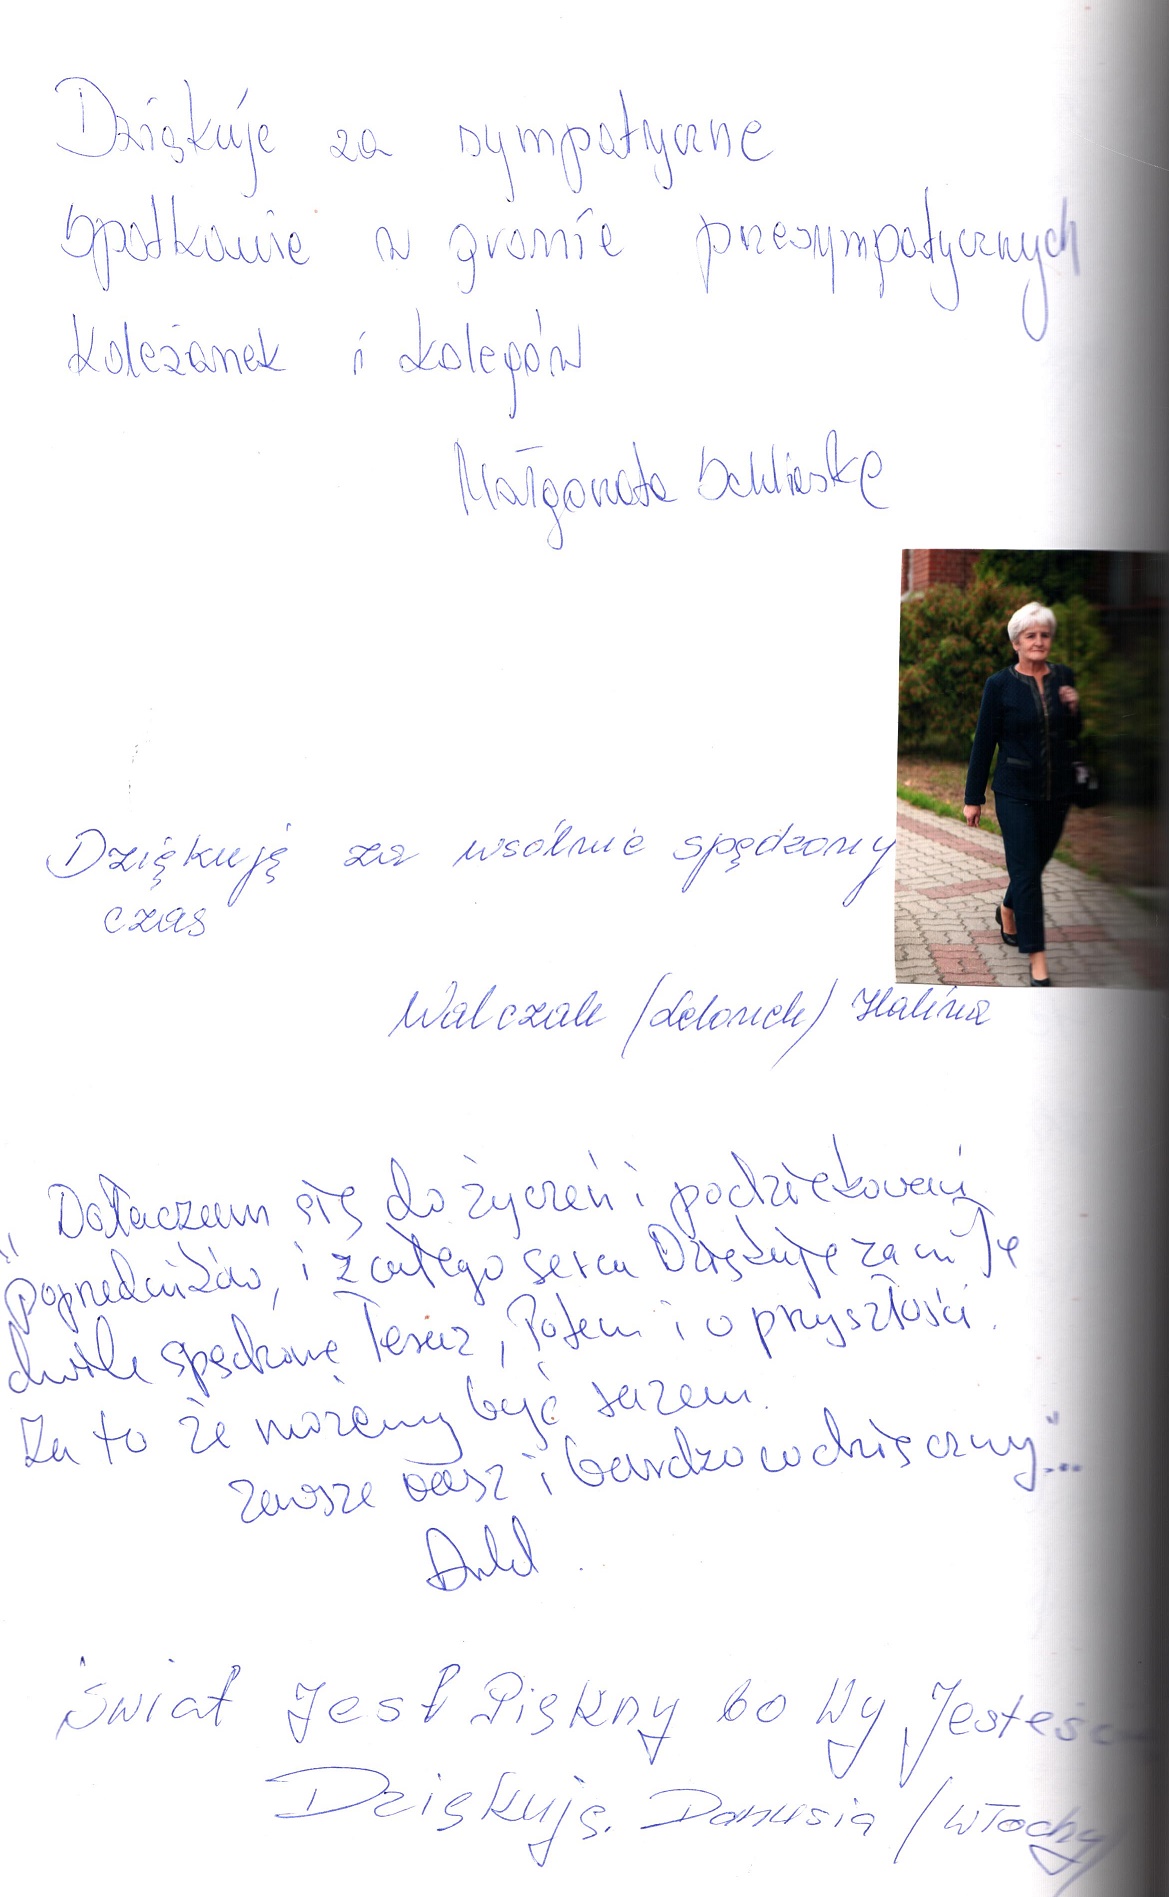 Dziękuje za sympatyczne
spotkanie w gronie przesympatycznych
koleżanek i kolegów
Małgorzata
Dziękuję za wsólnie spędzony
czas
Walczak Halina
"Dołączam się do życzeń i podziękowań
Poprzedników, i z całego serca Dziękuję za miłe
chwile spędzone Teraz, Potem i o przyszłości.
Za to że możemy być razem.
Zawsze Wasz i bardzo wdzięczny"...
Świat Jest Piękny bo Wy Jesteście
Dziękuję. Danusia (Włochy)